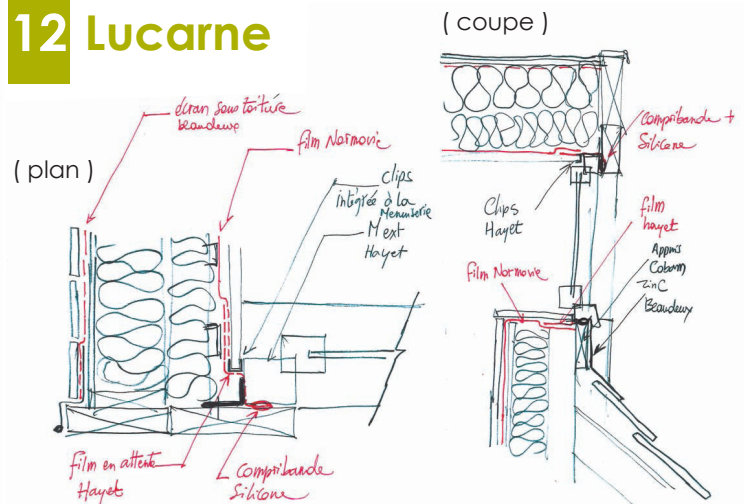 12 Lucarne
( coupe )
( plan )
écran sous toiture
beaudeux
film Normovie
clips
intégrée à la
Menuiserie
M ext
Hayet
film en attente
Hayet
Compribande
Silicone
Compribande +
Silicone
Clips
Hayet
film
hayet
Appuis
Zinc
Beaudeux
film Normovie